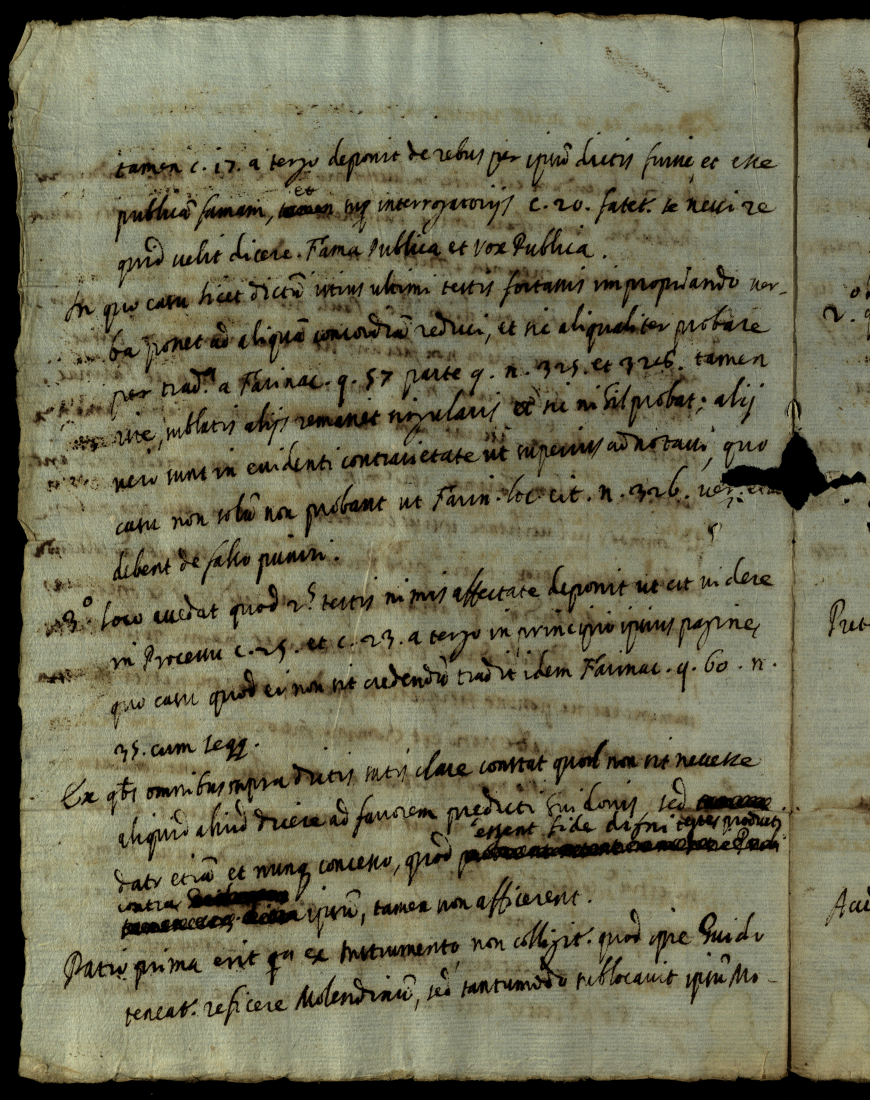 tamen c. 17. a tergo deponit de rebus per ipsū dictis fuisse, et esse
publicā famam, et sup interrogatorijs c. 20. fatet. se nescire
quid uelit dicere. Fama Publica et Vox Publica.
In quo casu licet dictū istius ultimi testis fortassis impropriando ver-
ba posset ad aliquā concordiā reduci, et sic aliqualiter probare
per trad.a a Farinac. q. 57 parte 9. n. 325. et 326. tamen
rite, sublatis alijs remanet singularis et sic nihil probat; alij
uero sunt in euidenti contrarietate ut superius adnotaui, quo
casu non solū non probant ut Farin. loc. cit. n. 326. uer.
debent de falso puniri.
3.o loco euedat quod 2.s testis nimis affectate deponit ut est uidere
in Processu c. 25. et c. 23. a tergo in principio ipsius pagine,
quo casu quod ei non sit credendū tradit idem Farinac. q. 60. n.
35. cum seqq.
Ex qbs omnibus supra dictis satis clare constat quod non sit necesse
aliquid aliud dicere ad fauorem predicti Guidonis, sed
essent fide digni testes producti
datr etiā et nunq concesso, quod
contra ipsū, tamen non afficerent.
Ratio prima erit qa ex Instrumento, non colligit. quod ipse Guido
teneat. reficere Molendinū, sed tantumodo sublocauit ipsū Mo-
2.
Pret